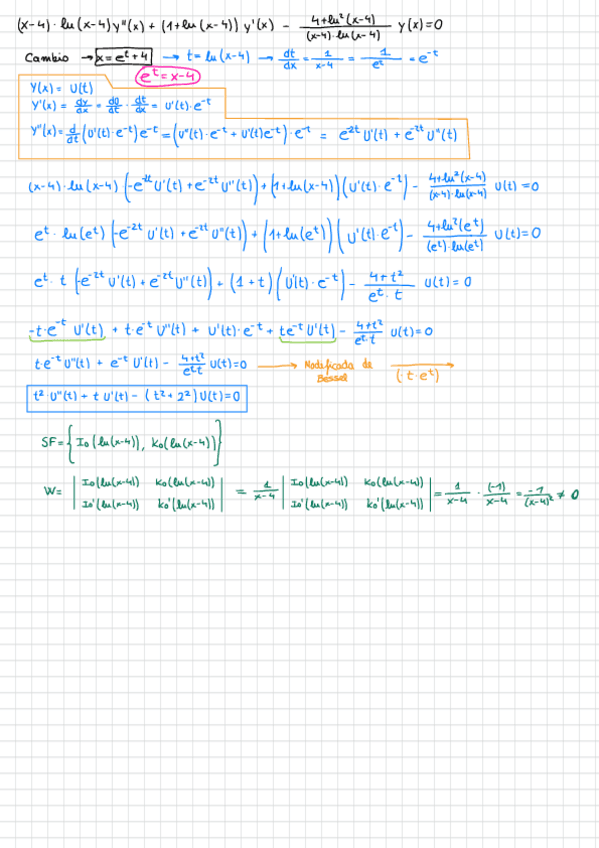 (x-4) · ln(x-4) y''(x) + (1+ln(x-4)) y'(x) - \frac{4+ln²(x-4)}{(x-4)·ln(x-4)} y(x) = 0
Cambio → x = e^t + 4 → t = ln(x-4) → \frac{dt}{dx} = \frac{1}{x-4} = \frac{1}{e^t} = e^{-t}
e^t = x-4
Y(x) = U(t)
Y'(x) = \frac{dy}{dx} = \frac{dU}{dt} · \frac{dt}{dx} = U'(t) · e^{-t}
Y''(x) = \frac{d}{dt}(U'(t)·e^{-t})e^{-t} = (U''(t)·e^{-t} + U'(t)e^{-t})·e^{-t} = e^{2t} U'(t) + e^{-2t} U''(t)
(x-4)·ln(x-4) (-e^{-2t} U'(t) + e^{-2t} U''(t)) + (1+ln(x-4)) (U'(t)·e^{-t}) - \frac{4+ln²(x-4)}{(x-4)·ln(x-4)} U(t) = 0
e^t · ln(e^t) (-e^{-2t} U'(t) + e^{-2t} U''(t)) + (1+ln(e^t)) (U'(t)·e^{-t}) - \frac{4+ln²(e^t)}{(e^t)·ln(e^t)} U(t) = 0
e^t · t (-e^{-2t} U'(t) + e^{-2t} U''(t)) + (1+t) (U'(t)·e^{-t}) - \frac{4+t²}{e^t · t} U(t) = 0
-t·e^{-t} U'(t) + t·e^{-t} U''(t) + U'(t)·e^{-t} + te^{-t} U'(t) - \frac{4+t²}{e^t·t} U(t) = 0
t·e^{-t} U''(t) + e^{-t} U'(t) - \frac{4+t²}{e^t·t} U(t) = 0 → Modificada de Bessel (·t·e^t) →
t²·U''(t) + t U'(t) - (t² + 2²) U(t) = 0
SF = {I₀(ln(x-4)), K₀(ln(x-4))}
W = | I₀(ln(x-4)) K₀(ln(x-4)) | = \frac{1}{x-4} | I₀(ln(x-4)) K₀(ln(x-4)) | = \frac{1}{x-4} · \frac{(-1)}{x-4} = \frac{-1}{(x-4)²} ≠ 0
| I₀'(ln(x-4)) K₀'(ln(x-4)) | | I₀'(ln(x-4)) K₀'(ln(x-4)) |